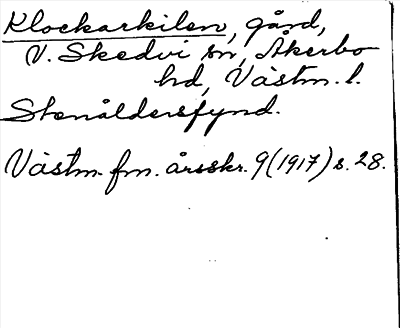 Klockarkilen, gård,
V. Skedvi sn, Åkerbo
hd, Västm. l.
Stenåldersfynd.
Västm. fm. årsskr. 9 (1917) s. 28.